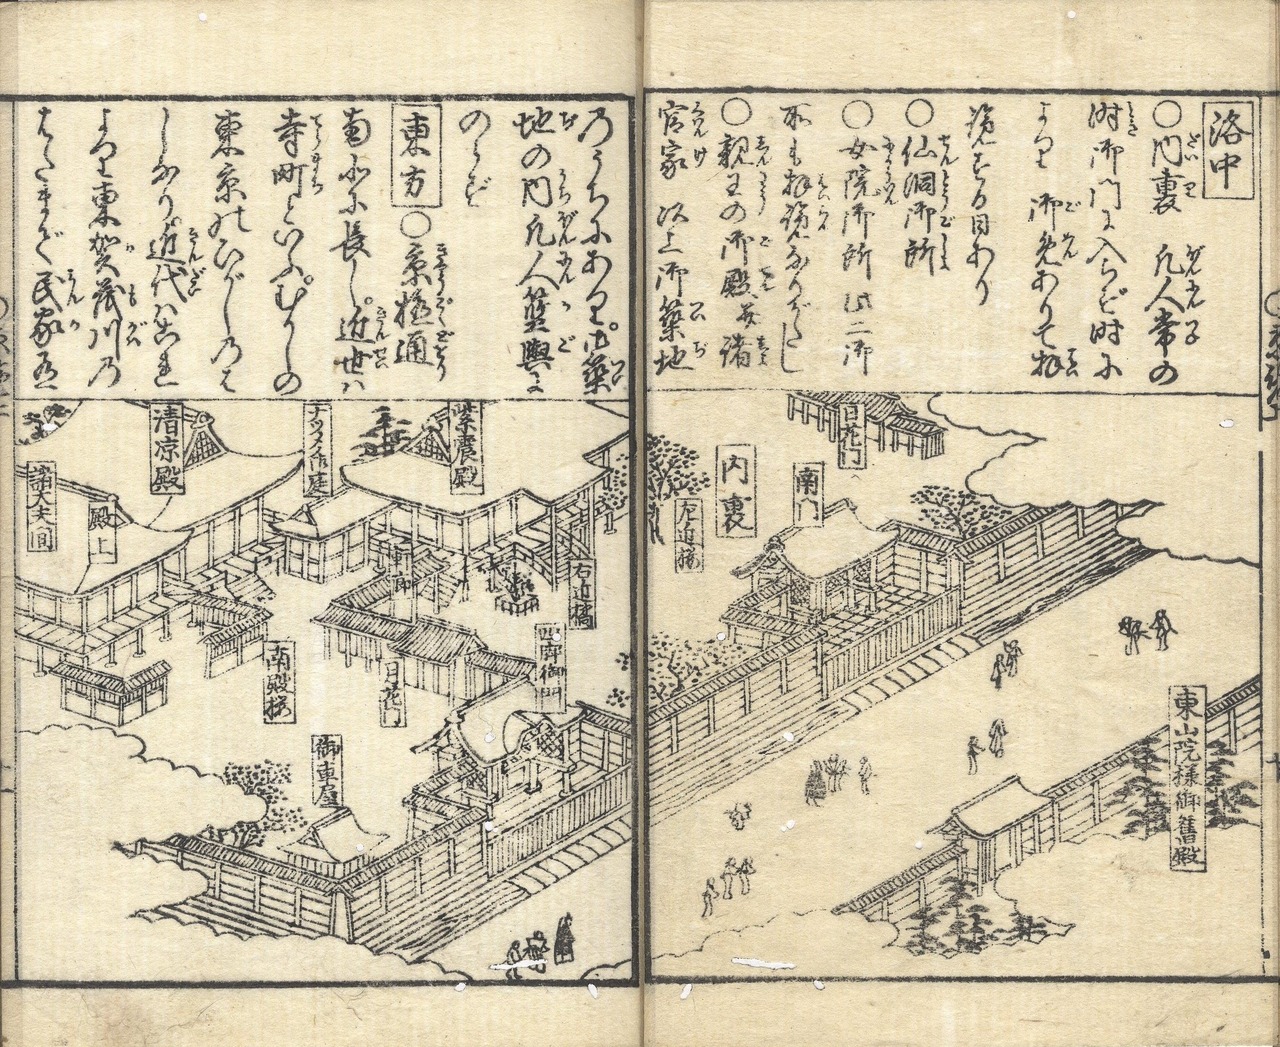 洛中
〇内裏 凡人常の
時御門に入らず時に
よつて御免ありて拝
覧する日あり
〇仙洞御所
〇女院御所 此二御
所も拝覧なりがたし
〇親王の御殿并諸
官家 以上御築地
のうちにあり。御築
地の内凡人籃輿に
のらず
東方 〇京極通
南北に長し。近世ハ
寺町といふ。むかしの
東京のひがしのは
しなり。近代ハこれ
より東賀茂川の
はたまで民家
日花門
内裏
南門
左近桜
東山院様御旧殿
紫震殿
清涼殿
殿上
諸大夫間
軒廊
右近橘
四脚御門
日花門
南殿桜
御車屋